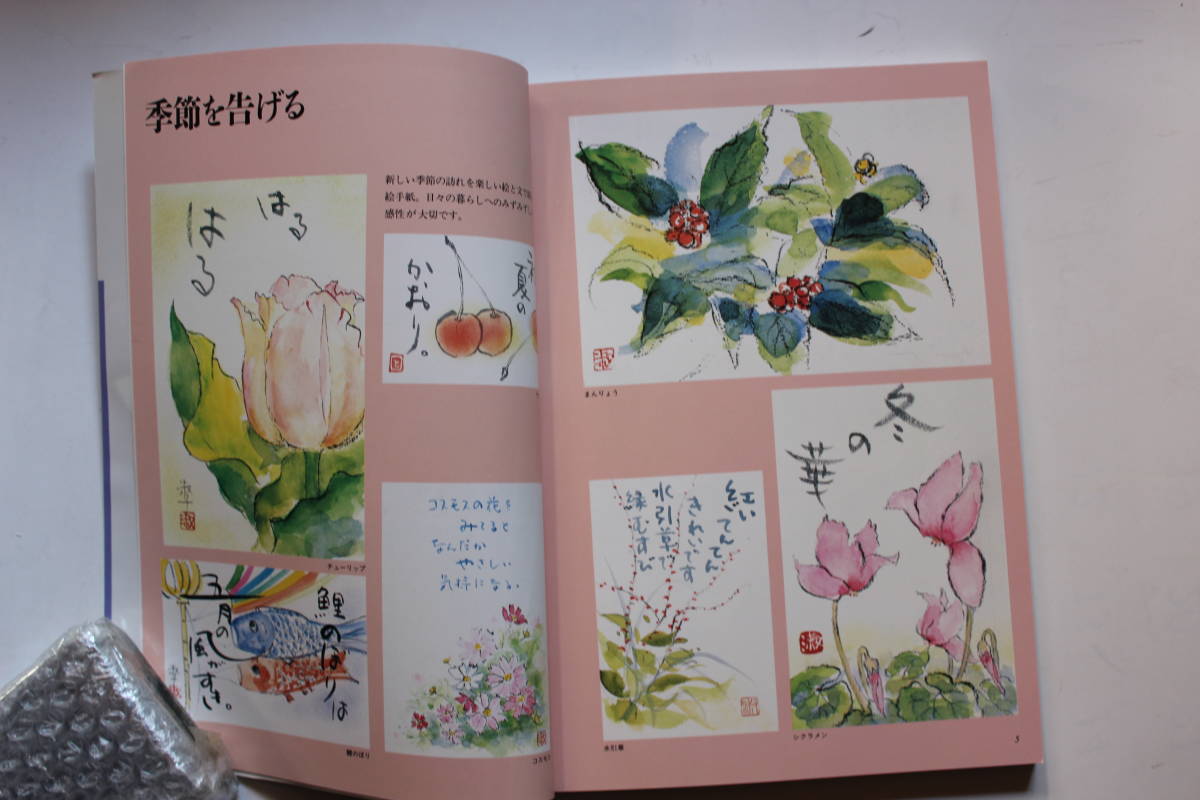 季節を告げる
新しい季節の訪れを楽しい絵と文で
絵手紙。日々の暮らしへのみずみずし
感性が大切です。
はる
はる
チューリップ
夏の
かおり。
鯉のぼりは
五月の
風がすき。
鯉のぼり
コスモスの花を
みてると
なんだか
やさしい
気持になる。
コスモス
まんりょう
紅い
てんてん
きれいです
水引草で
縁むすび
水引草
冬
の
華
シクラメン
5